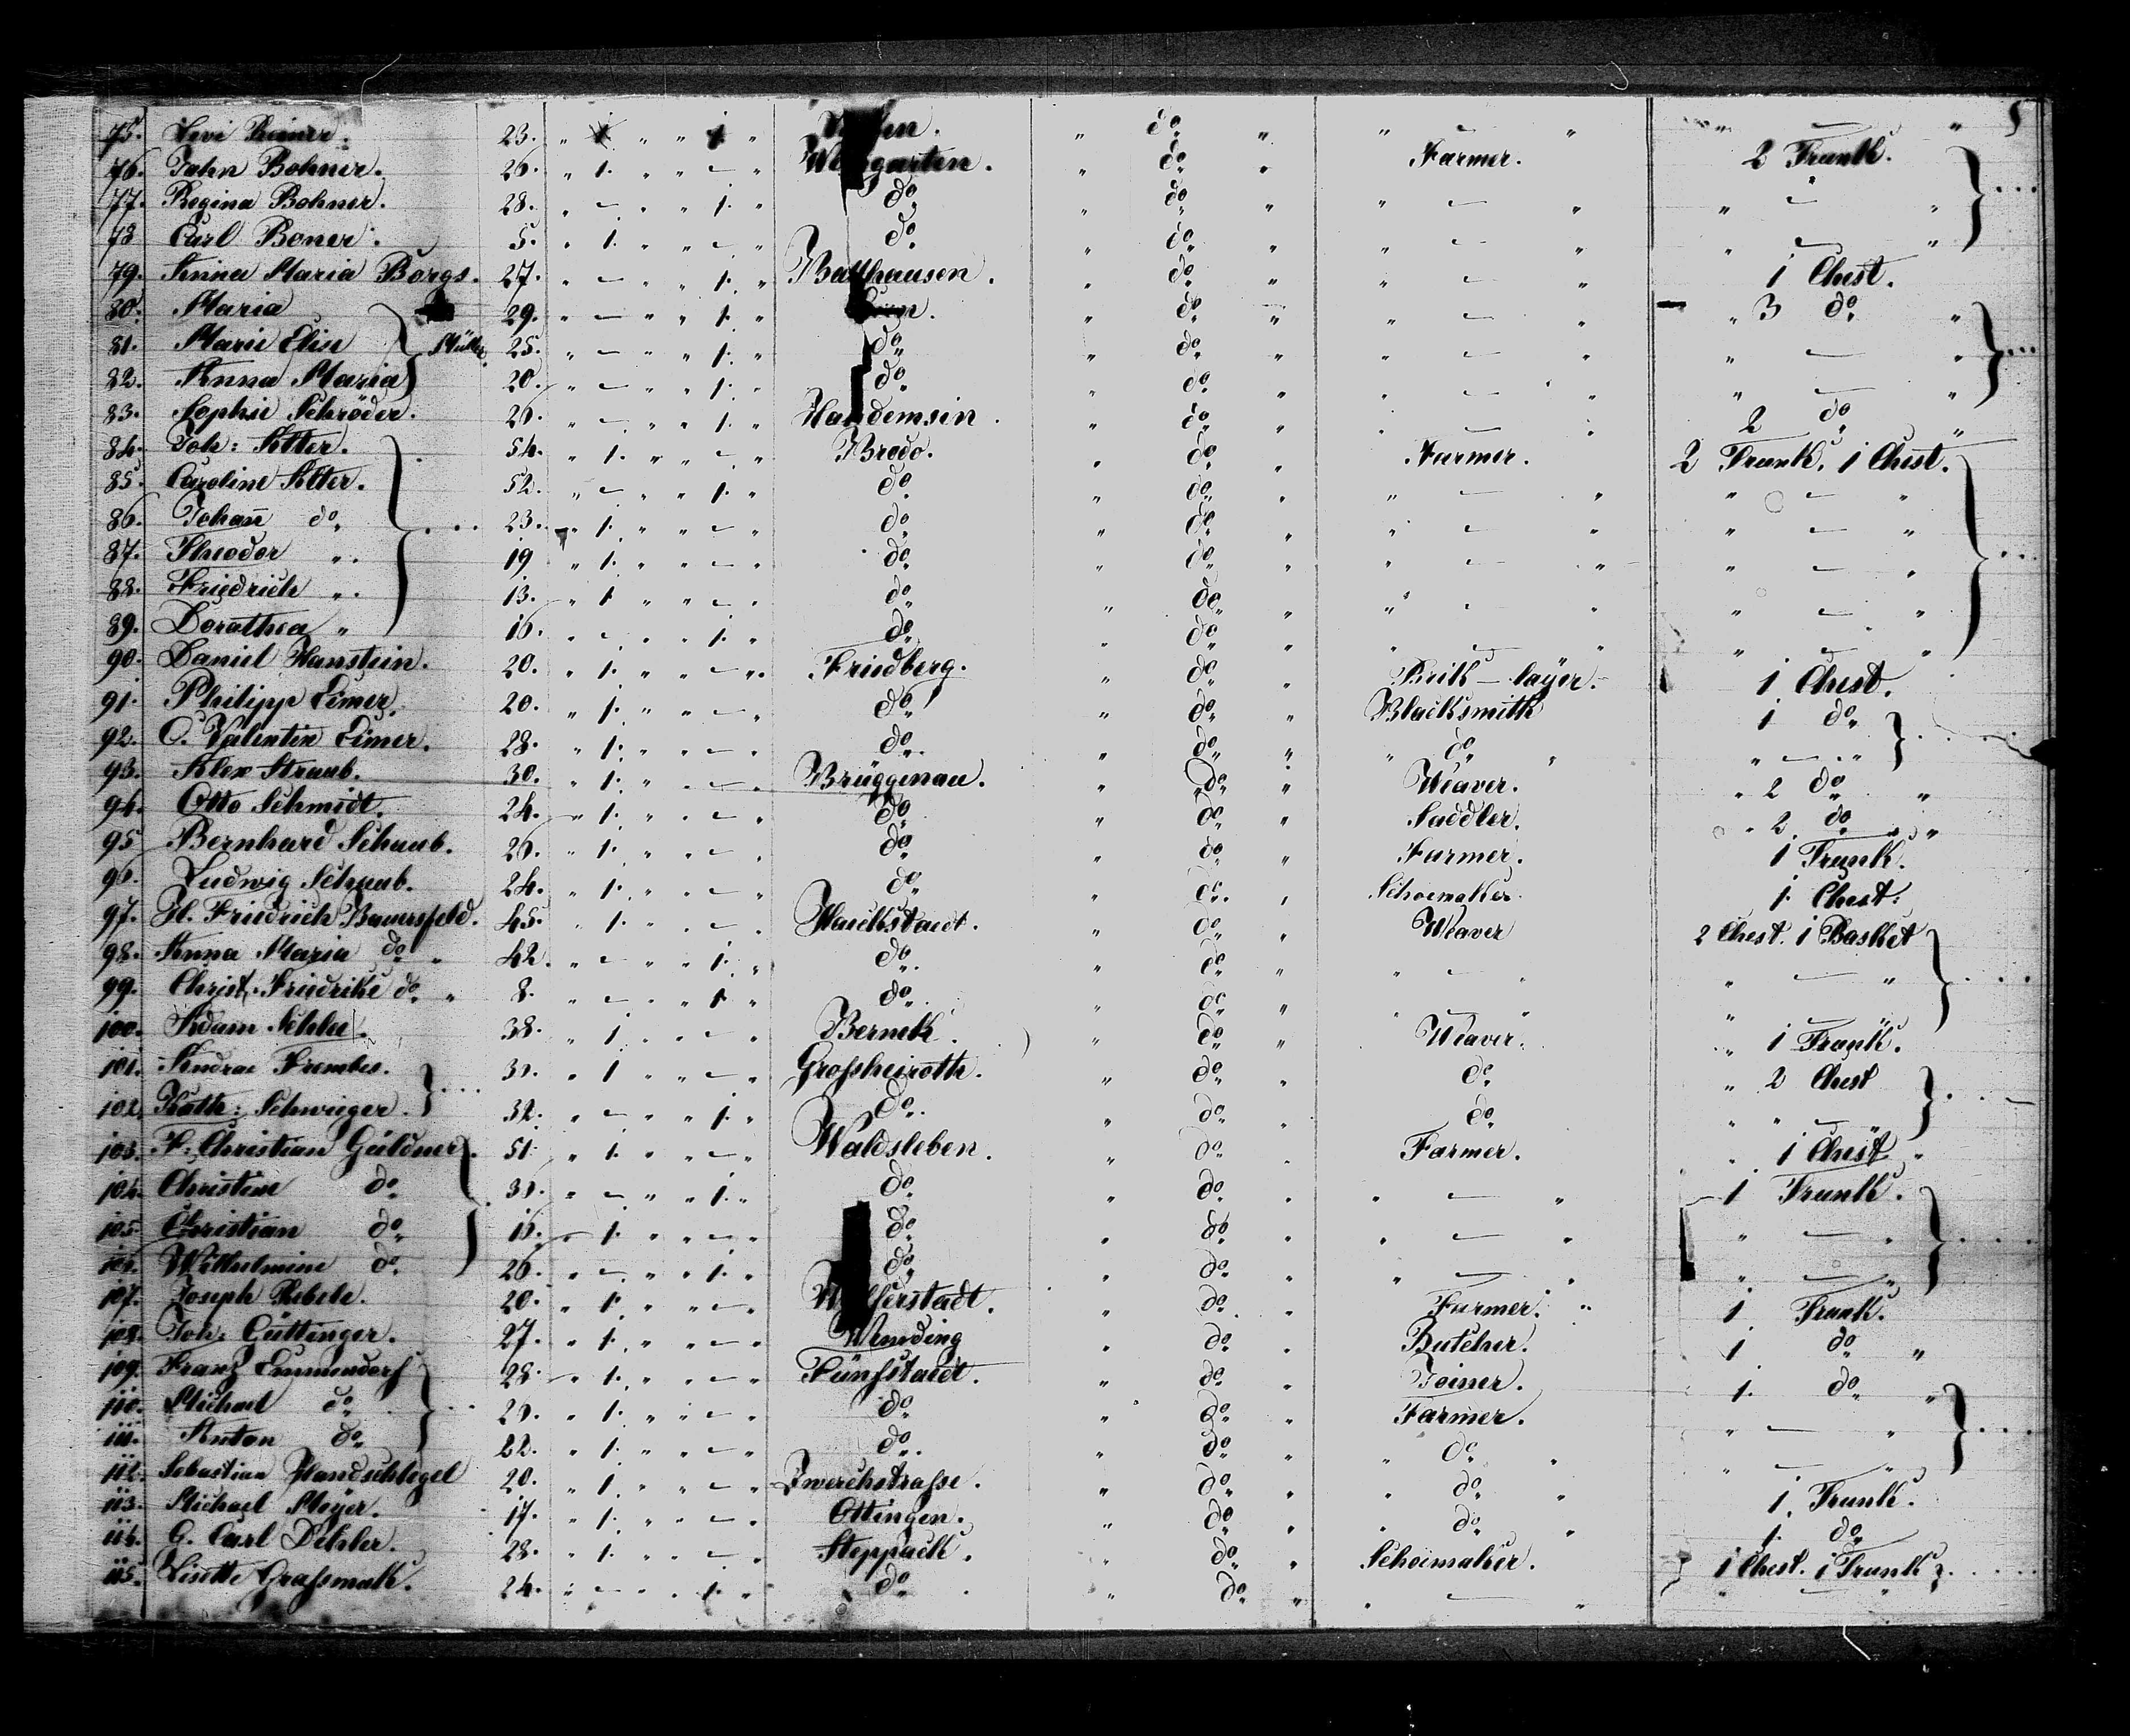 75. Levi 23. " 1 " " 1 " " do " " — " " — "
76. John Bohner. 26. " 1. " " — " Weingarten. " do " Farmer. 2 Trunk.
77. Regina Bohner. 28. " — " " 1. " do " do " " — " " — "
78 Carl Boner. 5. " 1. " " — " do " do " " — " " — "
79. Anna Maria Borgs. 27. " — " " 1. " Balthausen. " do " " — " 1 Chest.
80. Maria 29. " — " " 1. " " do " " — " " 3 do "
81. Marie Elise Müller. 25. " — " " 1. " do " do " " — " " — "
82. Anna Maria 20. " — " " 1. " do " do " " — " " — "
83. Sophie Schröder. 26. " — " " 1. " " do " " — " 2 do "
84. Joh: Alter. 54. " 1. " " — " Brodo. " do " Farmer. 2 Trunk. 1 Chest.
85. Caroline Alter. 52. " — " " 1. " do " do " " — " " — "
86. Johann do 23. " 1. " " — " do " do " " — " " — "
87. Theodor " 19 " 1. " " — " do " do " " — " " — "
88. Friedrich " 13. " 1 " " — " do " do " " — " " — "
89. Dorothea " 16. " — " " 1. " do " do " " — " " — "
90. Daniel Hanstein. 20. " 1. " " — " Friedberg. " do " Brik-layer. 1 Chest.
91. Philipp Eimer. 20. " 1. " " — " do " do " Blacksmith 1 do
92. C. Valentin Eimer. 28. " 1. " " — " do " do " " do " " — "
93. Alex Straub. 30. " 1. " " — " Brüggenau. " do " Weaver. " 2 do "
94. Otto Schmidt. 24. " 1. " " — " do " do " Saddler. " 2. do "
95 Bernhard Schaub. 26. " 1. " " — " do " do " Farmer. 1 Trunk.
96. Ludwig Schaub. 24. " 1. " " — " do " do " Schoemaker. 1. Chest.
97. H. Friedrich Bauersfeld. 45. " 1. " " — " " do " Weaver 2 Chest. 1 Basket
98. Anna Maria do " 42. " — " " 1. " do " do " " — " " — "
99. Christ. Friedrike do " 8. " — " " 1. " do " do " " — " " — "
100. Adam 38. " 1 " " — " Bernek. " do " Weaver. " 1 Trunk.
101. Andrae 30. " 1 " " — " Grossheiroth. " do " do " 2 Chest
102. Kath: Schwieger. 32. " — " " 1. " do " do " do " " — "
103. F. Christian Guldner. 51. " 1. " " — " Waldsleben. " do " Farmer. 1 Chest "
104. Christine do 30. " — " " 1. " do " do " " — " 1 Trunk.
105. Christian do 10. " 1. " " — " do " do " " — " " — "
106. Wilhelmine do 26. " — " " 1. " do " do " " — " " — "
107. Joseph 20. " 1. " " — " " do " Farmer. 1 Trunk.
108. Joh: Güttinger. 27. " 1. " " — " Wemding " do " Butcher. 1 do "
109. Franz Emmendorf 28. " 1. " " — " Fünfstaedt. " do " Joiner. 1. do "
110. Michael do 25. " 1. " " — " do " do " Farmer. " — "
111. Anton do 22. " 1. " " — " do " do " " do " " — "
112. Sebastian Handschlegel 20. " 1 " " — " Zwerchstrasse. " do " " do " 1. Trunk.
113. Michael Mayer. 17. " 1. " " — " Ottingen. " do " " do " 1. do
114. G. Carl Dehler. 28. " 1. " " — " Steppach. " do " Schoemaker. 1 Chest. 1 Trunk
115. Lisette Grassmuk. 24. " — " " 1. " do " do " " — " " — "